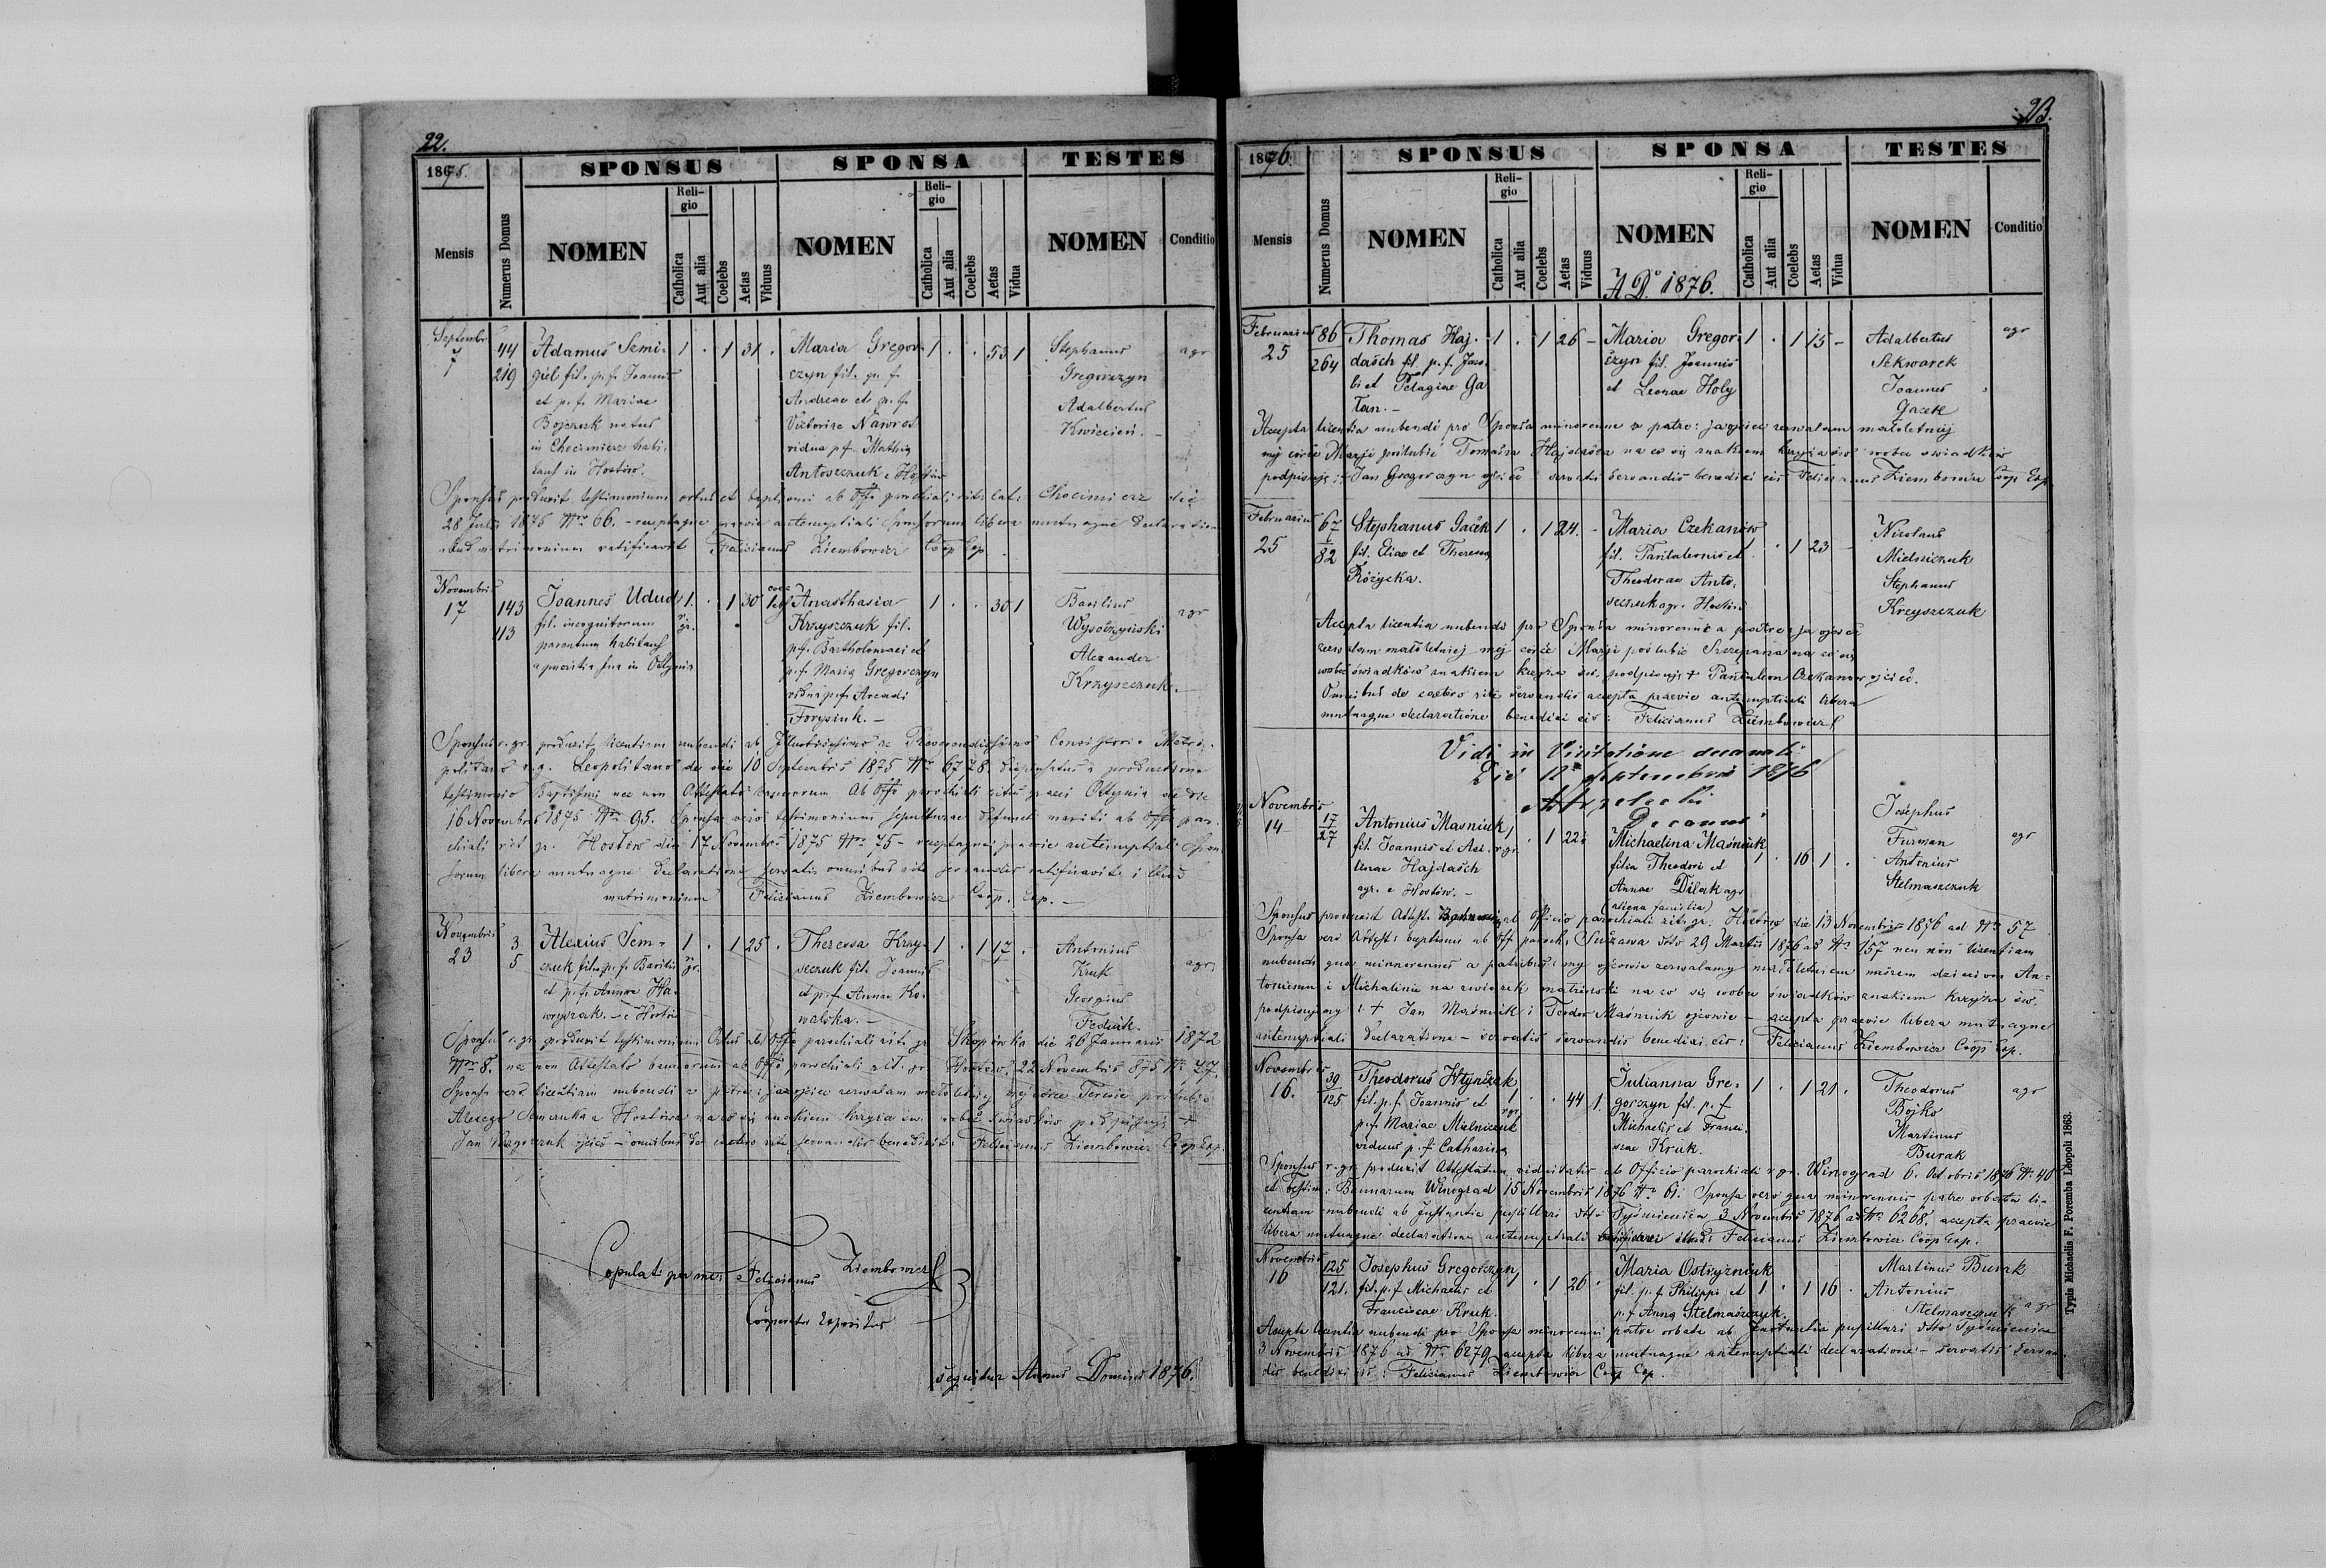 22.
1875.
SPONSUS
SPONSA
TESTES
Mensis
Numerus Domus
NOMEN
Religio
Catholica
Aut alia
Coelebs
Aetas
Viduus
NOMEN
Religio
Catholica
Aut alia
Coelebs
Aetas
Vidua
NOMEN
Conditio
Septembr
7
44
219
Adamus Semi-
giel fil. p.f. Joannis
et p.f. Mariae
Bojczuk natus
in Chocimierz habi-
tans in Hostów.
1 . 1 31 .
Maria Gregor-
czyn fil. p.f.
Andreae et p.f.
Victoriae Nawrot
vidua p.f. Mathia
Antoszczuk e Hostów
1 . . 53 1
Stephanus
Gregorczyn
Adalbertus
Kwiecień. -
agr
Sponsus produxit testimonium ortus et baptismi ab Offo parochiali rit. lat. Chocimierz die
28 Julii 1875 Nro 66. - receptaque praevie antenuptiali Sponsorum libera mutuaque declaratione
illud matrimonium ratificavit Felicianus Ziembowicz Coop Exp.
Novembris
17
143
113
Joannes Udud
fil. incognitorum
parentum habitans
a pueritia sua in Ottynia
1. r. gr. . 1 30
Anasthasia
Krzyszczuk fil.
p.f. Bartholomaei et
p.f. Maria Gregorczyn
vidua p.f. Arcadi
Forysiuk. -
1 . . 30 1
Basilius
Wysoczyński
Alexander
Krzyszczuk. -
agr
Sponsus r. gr. produxit licentiam nubendi ab Illustrissimo ac Reverendissimo Consistorio Metro-
politano r.g. Leopolitano de die 10 Septembris 1875 Nro 6778. dispensatus a productione
testimonio Baptismi nec non Attestato bannorum ab Offo parochiali ritus graeci Ottynia de die
16 Novembris 1875 Nro 95. Sponsa vero testimonium sepulturae defuncti mariti ab Offo par-
chiali rit gr. Hostów die 17 Novembris 1875 Nro 75 - receptaque praevie antenuptiali Spon-
sorum libera mutuaque declaratione servatis omnibus rite servandis ratificavit illud
matrimonium Felicianus Ziembowicz Coop. Exp. -
Novembris
23
3
5
Alexius Sem-
czuk fil. p.f. Basilii
et p.f. Annae Ha-
wryszak. - e Hostów
1 r. gr. . 1 25 .
Theressa Krzy-
szczuk fil. Joannis
et p.f. Annae Ko-
walska. -
1 . 1 17 .
Antonius
Kruk
Georgius
Feduik.
agr
Sponsus r. gr. produxit testimonium Ortus ab Offo parochiali rit. gr. Skopówka die 26 Januarii 1872
Nro 8. nec non Attestato bannorum ab Offo parochiali rit. gr. Hostów 22 Novembris 875 Nr. 77.
Sponsa vero licentiam nubendi a patre: ja ojciec zezwalam małoletniej mej córce Teresie poślubić
Alexego Semczuka z Hostowa na co się znakiem krzyża św. wobec świadków podpisuję +
Jan Krzyszczuk ojciec - omnibus de caetero rite servandis benedixit: Felicianus Ziembowicz Coop Exp.
Copulati per me: Felicianus Ziembowicz
Cooperator Expositus
sequitur Annus Domini 1876.
23.
1876.
SPONSUS
SPONSA
TESTES
Mensis
Numerus Domus
NOMEN
Religio
Catholica
Aut alia
Coelebs
Aetas
Viduus
NOMEN
A D. 1876.
Religio
Catholica
Aut alia
Coelebs
Aetas
Vidua
NOMEN
Conditio
Februarius
25
86
264
Thomas Haj-
dasch fil. p.f. Jaco-
bi et Pelagiae Ga
Tan. -
1 . 1 26 -
Maria Gregor-
czyn fil. Joannis
et Leonae Holy
1 . 1 15 -
Adalbertus
Sekwarek
Joannes
Gazek
agr
Accepta licentia nubendi pro Sponsa minorenne a patre: ja ojciec zezwalam małoletniej
mej córce Maryi poślubić Tomasza Hajdasza na co się znakiem krzyża św. wobec świadków
podpisuję: + Jan Gregorczyn ojciec servatis servandis benedixi eis Felicianus Ziembowicz Coop Exp
Februarius
25
67
82
Stephanus Gaćek
fil. Eliae et Theressa
Różycka.
1 . 1 24. -
Maria Czekanów
fil. Pantaleonis et
Theodorae Anto-
szczuk agr. Hostów
1 . 1 23 -
Nicolaus
Mielniczuk
Stephanus
Kreyszczuk
Accepta licentia nubendi pro Sponsa minorenni a patre: ja ojciec
zezwalam małoletniej mej córce Maryi poślubić Szczepana na co się
wobec świadków znakiem krzyża św. podpisuję + Pantaleon Czekanów ojciec.
Omnibus de caetero rite servandis accepta praevie antenuptiali libera
mutuaque declaratione benedixi eis: Felicianus Ziembowicz
Vidi in Visitatione decanali
Die 12 Septembris 1876
Decanus
Novembris
14
17
27
Antonius Maśniuk
fil. Joannis et Ael-
lenae Hajdasch
agr. e Hostów. -
1 r. gr . 1 22
Michaelina Maśniuk
filia Theodori et
Annae Dilak agr
(aliena familia)
1 . 16 1 .
Josephus
Furman
Antonius
Stelmaszczuk
agr
Sponsus produxit Attest. Bannorum ab Officio parochiali rit. gr. Hostów die 13 Novembris 1876 ad Nro 57
Sponsa vero Attest: baptismi ab Off paroch. Suczawa dto 29 Martii 1876 ad Nro 157 nec non licentiam
nubendi qua minorennes a patribus: my ojcowie zezwalamy małoletniem naszem dzieciom An-
toniemu i Michalinie na związek małżeński na co się wobec świadków znakiem krzyża św.
podpisujemy: + Jan Maśniuk i Teodor Maśniuk ojcowie - accepta praevie libera mutuaque
antenuptiali declaratione - servatis servandis benedixi eis: Felicianus Ziembowicz Coop Exp.
Novembris
16.
39
125
Theodorus Htynczak
fil. p.f. Joannis et
p.f. Mariae Mielniczuk
viduus p.f. Catharina
1 r gr . . 44 1.
Julianna Gre-
gorczyn fil. p.f
Michaelis et Franci-
scae Kruk.
1 . 1 21 .
Theodorus
Bojko
Martinus
Burak
agr
Sponsus r. gr. produxit Attestatum viduitatis ab Officio parochiali r. gr. Winograd 6. Octobris 1876 Nr. 40
et testim: Bannarum Winograd 15 Novembris 1876 Nro 61. Sponsa vero qua minorennis patre orbata li-
centiam nubendi ab Instantia pupillari dto Tyśmienica 3 Novembris 1876 ad Nro 6268. accepta praevie
libera mutuaque declaratione antenuptiali illud: Felicianus Ziembowicz Coop Exp.
Novembris
16
125
121.
Josephus Gregorczyn
fil. p.f Michaelis et
Franciscae Kruk.
1 . 1 26 .
Maria Ostryzniuk
fil. p.f Philippi et
p.f Anna Stelmaszczuk.
1 . 1 16 .
Martinus Burak
Antonius
Stelmaszczuk
agr
Accepta licentia nubendi pro Sponsa minorenni patre orbata ab Instantia pupillari dto Tyśmienica
3 Novembris 1876 ad Nro 6279 accepta libera mutuaque antenuptiali declaratione - servatis servan-
dis benedixi eis: Felicianus Ziembowicz Coop Exp.
Typis Michaelis F. Poremba Leopoli 1863.